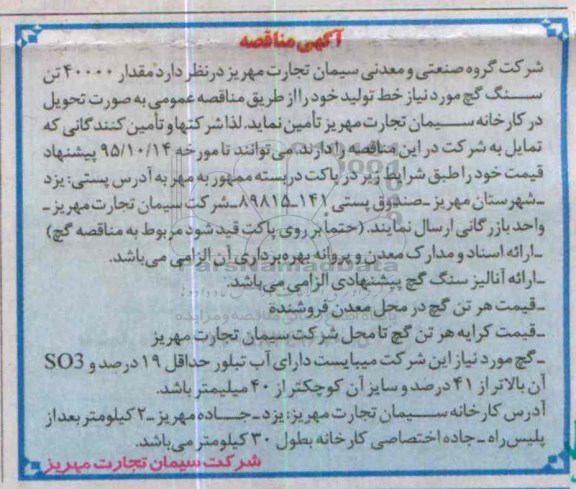 آگهی مناقصه
شرکت گروه صنعتی و معدنی سیمان تجارت مهریز درنظر دارد مقدار ۴۰۰۰۰ تن
سنگ گچ مورد نیاز خط تولید خود را از طریق مناقصه عمومی به صورت تحویل
در کارخانه سیمان تجارت مهریز تأمین نماید. لذا شرکتها و تأمین کنندگانی که
تمایل به شرکت در این مناقصه را دارند، می توانند تا مورخه ۹۵/۱۰/۱۴ پیشنهاد
قیمت خود را طبق شرایط زیر در پاکت دربسته ممهور به مهر به آدرس پستی: یزد
ـ شهرستان مهریز ـ صندوق پستی ۱۴۱ـ۸۹۸۱۵ ـ شرکت سیمان تجارت مهریز ـ
واحد بازرگانی ارسال نمایند. (حتماً بر روی پاکت قید شود مربوط به مناقصه گچ)
ـ ارائه اسناد و مدارک معدن و پروانه بهره برداری آن الزامی می باشد.
ـ ارائه آنالیز سنگ گچ پیشنهادی الزامی می باشد.
ـ قیمت هر تن گچ در محل معدن فروشنده
ـ قیمت کرایه هر تن گچ تا محل شرکت سیمان تجارت مهریز
ـ گچ مورد نیاز این شرکت میبایست دارای آب تبلور حداقل ۱۹ درصد و SO3
آن بالاتر از ۴۱ درصد و سایز آن کوچکتر از ۴۰ میلیمتر باشد.
آدرس کارخانه سیمان تجارت مهریز: یزد ـ جاده مهریز ـ ۲ کیلومتر بعد از
پلیس راه ـ جاده اختصاصی کارخانه بطول ۳۰ کیلومتر می باشد.
شرکت سیمان تجارت مهریز
ParsNamadData